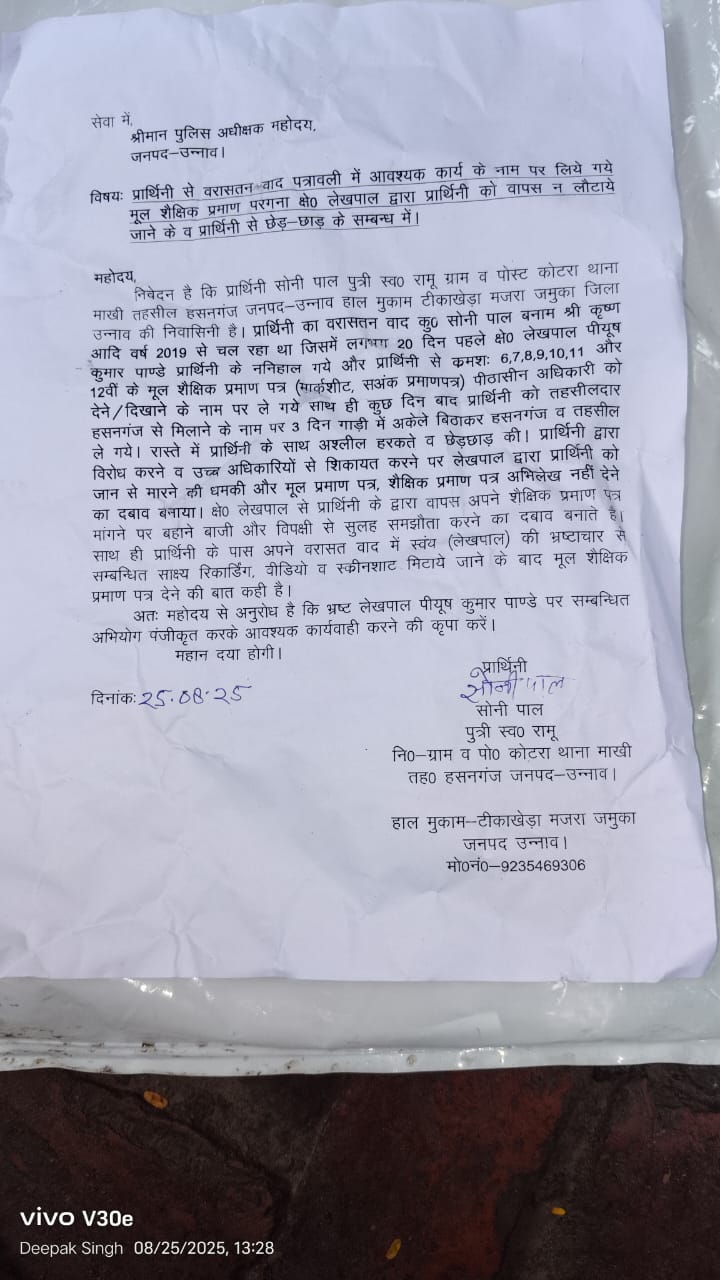 सेवा में,
श्रीमान पुलिस अधीक्षक महोदय,
जनपद–उन्नाव।
विषयः प्रार्थिनी से वरासतन वाद पत्रावली में आवश्यक कार्य के नाम पर लिये गये
मूल शैक्षिक प्रमाण परगना क्षे0 लेखपाल द्वारा प्रार्थिनी को वापस न लौटाये
जाने के व प्रार्थिनी से छेड़–छाड़ के सम्बन्ध में।
महोदय,
निवेदन है कि प्रार्थिनी सोनी पाल पुत्री स्व0 रामू ग्राम व पोस्ट कोटरा थाना
माखी तहसील हसनगंज जनपद–उन्नाव हाल मुकाम टीकाखेड़ा मजरा जमुका जिला
उन्नाव की निवासिनी है। प्रार्थिनी का वरासतन वाद कु0 सोनी पाल बनाम श्री कृष्ण
आदि वर्ष 2019 से चल रहा था जिसमें लगभग 20 दिन पहले क्षे0 लेखपाल पीयूष
कुमार पाण्डे प्रार्थिनी के ननिहाल गये और प्रार्थिनी से कमशः 6,7,8,9,10,11 और
12वीं के मूल शैक्षिक प्रमाण पत्र (मार्कशीट, सअंक प्रमाणपत्र) पीठासीन अधिकारी को
देने/दिखाने के नाम पर ले गये साथ ही कुछ दिन बाद प्रार्थिनी को तहसीलदार
हसनगंज से मिलाने के नाम पर 3 दिन गाड़ी में अकेले बिठाकर हसनगंज व तहसील
ले गये। रास्ते में प्रार्थिनी के साथ अश्लील हरकते व छेड़छाड़ की। प्रार्थिनी द्वारा
विरोध करने व उच्च अधिकारियों से शिकायत करने पर लेखपाल द्वारा प्रार्थिनी को
जान से मारने की धमकी और मूल प्रमाण पत्र, शैक्षिक प्रमाण पत्र अभिलेख नहीं देने
का दबाव बनाया। क्षे0 लेखपाल से प्रार्थिनी के द्वारा वापस अपने शैक्षिक प्रमाण पत्र
मांगने पर बहाने बाजी और विपक्षी से सुलह समझौता करने का दबाव बनाते है।
साथ ही प्रार्थिनी के पास अपने वरासत वाद में स्वंय (लेखपाल) की भ्रष्टाचार से
सम्बन्धित साक्ष्य रिकार्डिंग, वीडियो व स्क्रीनशाट मिटाये जाने के बाद मूल शैक्षिक
प्रमाण पत्र देने की बात कही है।
अतः महोदय से अनुरोध है कि भ्रष्ट लेखपाल पीयूष कुमार पाण्डे पर सम्बन्धित
अभियोग पंजीकृत करके आवश्यक कार्यवाही करने की कृपा करें।
महान दया होगी।
प्रार्थिनी
दिनांकः 25.08.25
सोनी पाल
सोनी पाल
पुत्री स्व0 रामू
नि0–ग्राम व पो0 कोटरा थाना माखी
तह0 हसनगंज जनपद–उन्नाव।
हाल मुकाम–टीकाखेड़ा मजरा जमुका
जनपद उन्नाव।
मो0नं0–9235469306
vivo V30e
Deepak Singh 08/25/2025, 13:28